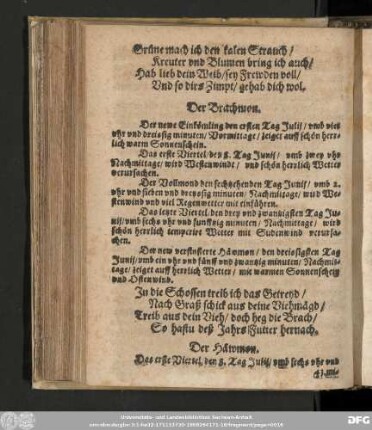 Grüne mach ich den kalen Strauch/
Kreuter vnd Blumen bring ich auch/
Hab lieb dein Weib/sey Frewden voll/
Vnd so dirs Zimpt/gehab dich wol.
Der Brachmon.
Der newe Einkömling den ersten Tag Julij/ vmb vier
vhr vnd dreissig minuten/Vormittage/ zeiget auff schön herr-
lich warm Sonnenschein.
Das erste Viertel/den 8. Tag Junij/ vmb zwey vhr
Nachmittage/wird Westenwindt/ vnd schön herrlich Wetter
verursachen.
Der Vollmond den sechzehenden Tag Junij/ vmb 2.
vhr vnd sieben vnd dreyssig minuten/ Nachmittage/ wird We-
stenwind vnd viel Regenwetter mit einführen.
Das letzte Viertel den drey vnd zwantzigsten Tag Ju-
nij/vmb sechs vhr vnd funfftzig minuten/ Nachmittage/ wird
schön herrlich temperirt Wetter mit Sudenwind verursa-
chen.
Der new verfinsterte Häwmon/ den dreissigsten Tag
Junij/vmb ein vhr vnd fünff vnd zwantzig minuten/ Nachmit-
tage/zeiget auff herrlich Wetter/ mit warmen Sonnenschein
vnd Ostenwind.
Zu die Schossen treib ich das Getreyd/
Nach Graß schick aus deine Viehmägd/
Treib aus dein Vieh/ doch heg die Brach/
So hastu deß Jahrs Futter hernach.
Der Häwmon.
Das erste Viertel, den 8. Tag Julij/ vmb sechs vhr vnd
Universitäts- und Landesbibliothek Sachsen-Anhalt
DFG